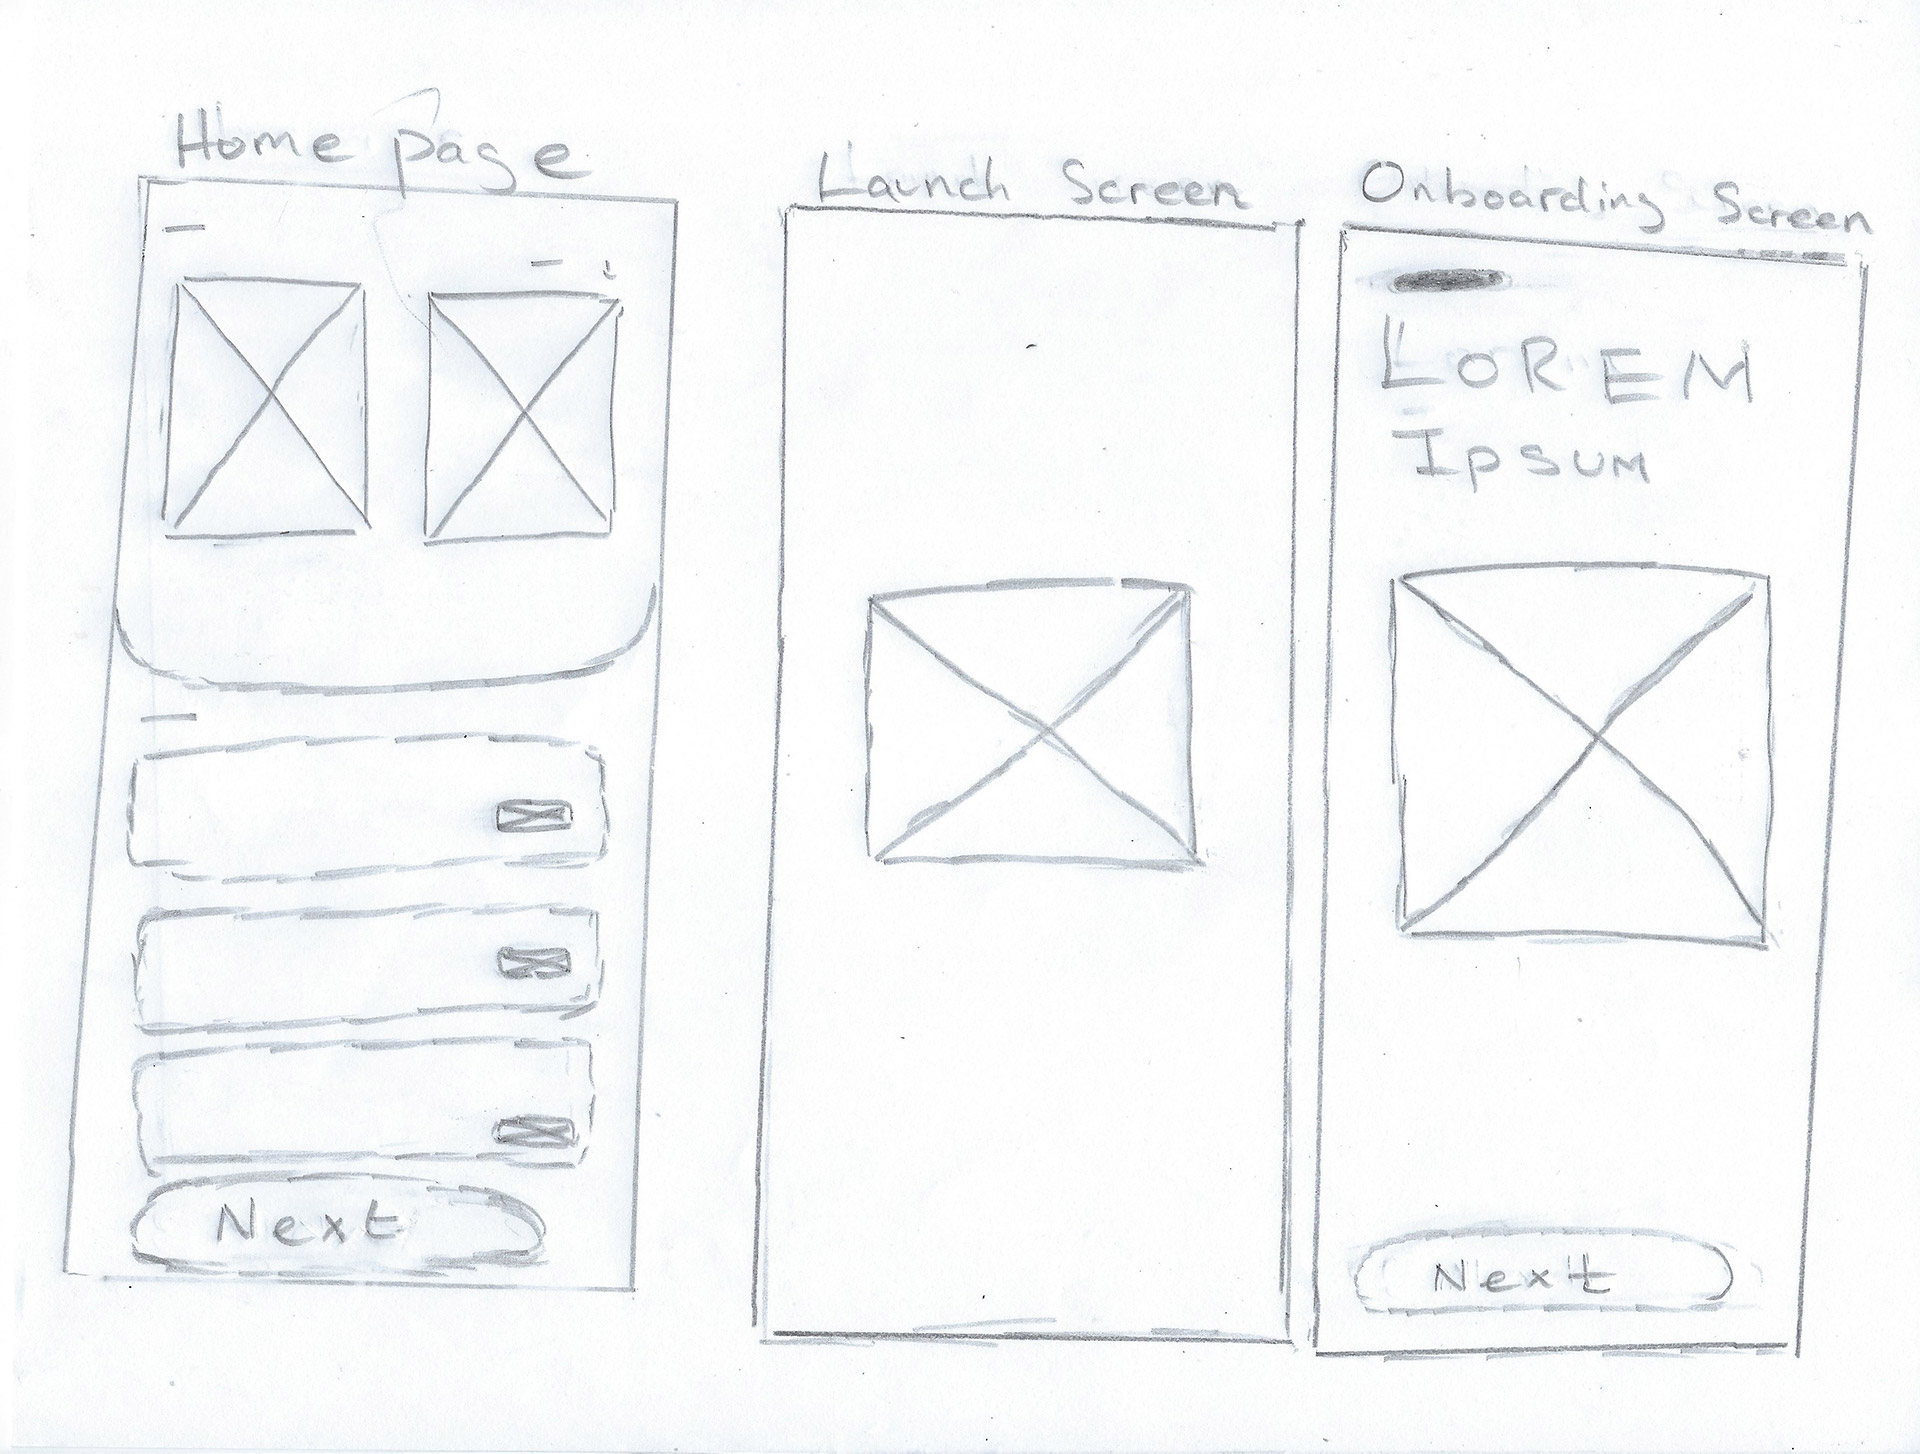 Home page
Next
Launch Screen
Onboarding Screen
LOREM
IPSUM
Next